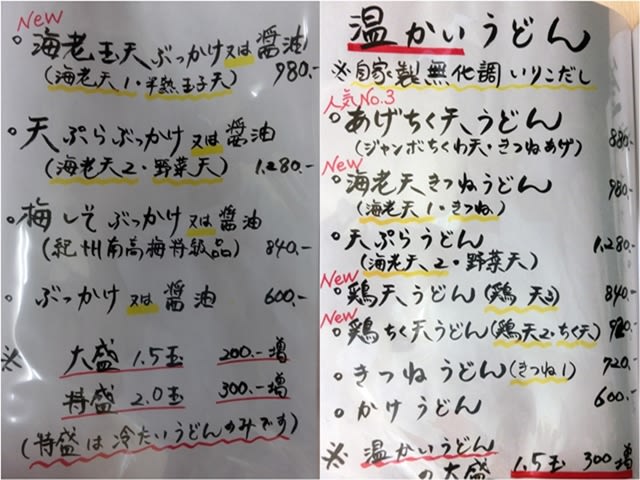 New
。海老玉天ぶっかけ又は醤油
(海老天1・半熟玉子天) 980.-
。天ぷらぶっかけ又は醤油
(海老天2・野菜天) 1,280.-
。梅しそぶっかけ又は醤油
(紀州南高梅特級品) 840.-
。ぶっかけ又は醤油 600.-
※ 大盛 1.5玉 200.-増
特盛 2.0玉 300.-増
(特盛は冷たいうどんのみです)
温かいうどん
※自家製無化調いりこだし
人気No.3
。あげちく天うどん
(ジャンボちくわ天・きつねあげ) 880.-
New
。海老天きつねうどん 980.-
(海老天1・きつね1)
。天ぷらうどん 1,280.-
(海老天2・野菜天)
New
。鶏天うどん(鶏天3) 840.-
New
。鶏ちく天うどん(鶏天2・ちく天)
。きつねうどん(きつね1) 720.-
。かけうどん 600.-
※ 温かいうどん
の大盛 1.5玉 300増